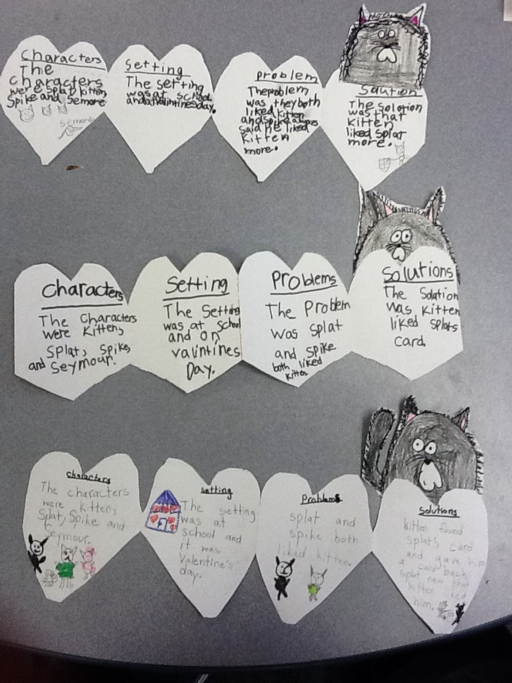 Characters
The
characters
were splat, kitten
Spike and Semore
Setting
The setting
was at school
and at valintinesday.
Problem
The problem
was they both
liked kitten
and spike always
said he liked
kitten
more.
Solution
The solotion
was that
kitten
liked Splat
more.
Characters
The Characters
were Kitten,
Splat, Spike,
and Seymour.
Setting
The Setting
was at school
and on
valintines
Day.
Problems
The Problem
was splat
and spike
both liked
kitten
Solutions
The Solution
was kitten
liked splats
card
Characters
The characters
were kitten,
Splat, Spike and
Seymour.
Setting
The setting
was at
school and
it was
Valentine's
day.
Problems
splat and
spike both
liked kitten.
Solutions
kitten found
splat's card
and gave him
a card back
splat
kitten
him.